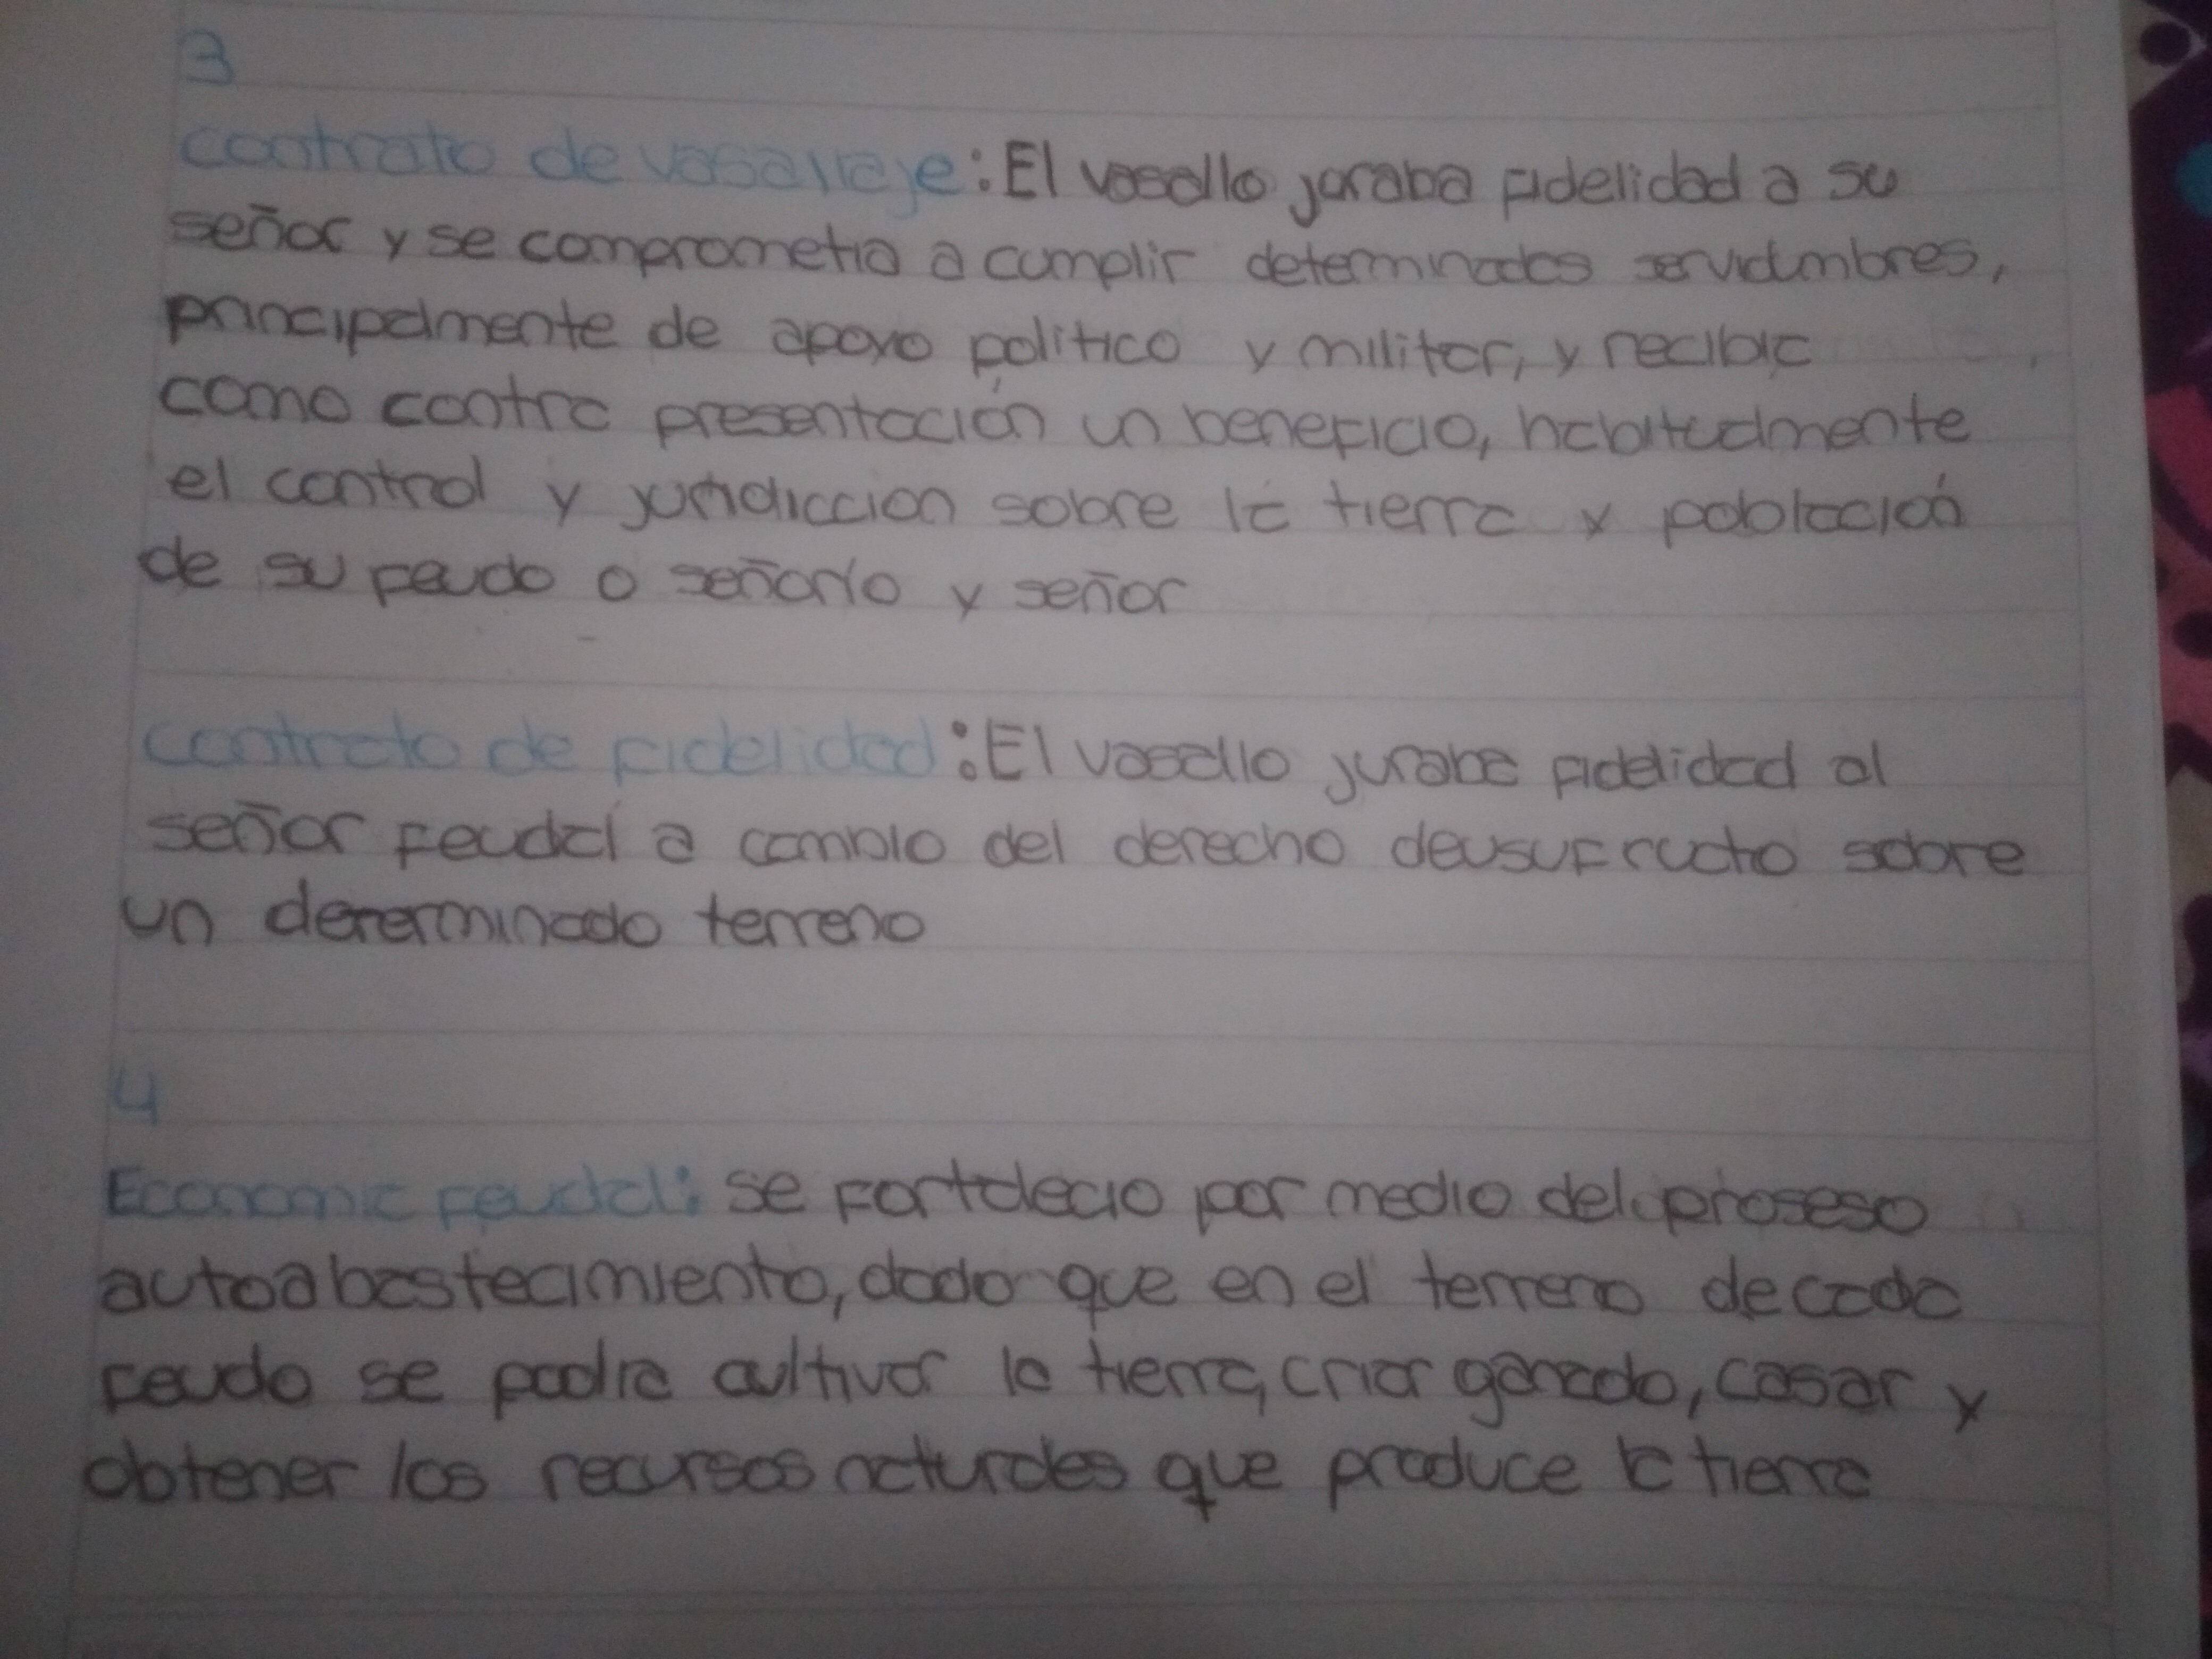 3
contrato de vasallaje: El vasallo juraba fidelidad a su
señor y se comprometia a cumplir determinados servidumbres,
principalmente de apoyo politico y militar, y recibia
como contra presentación un beneficio, habitualmente
el control y juridiccion sobre la tierra y población
de su feudo o señorío y señor
contrato de fidelidad: El vasallo juraba fidelidad al
señor feudal a cambio del derecho deusufructo sobre
un determinado terreno
4
Economia feudal: se fortalecio por medio del proseso
autoabastecimiento, dado que en el terreno de cada
feudo se podia cultivar la tierra, criar ganado, casar y
obtener los recursos naturales que produce la tierra